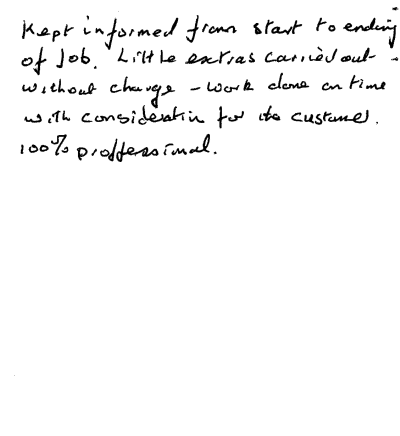 Kept informed from start to ending
of Job. Little extras carried out
without charge - work done on time
with consideration for the customer.
100% proffessional.